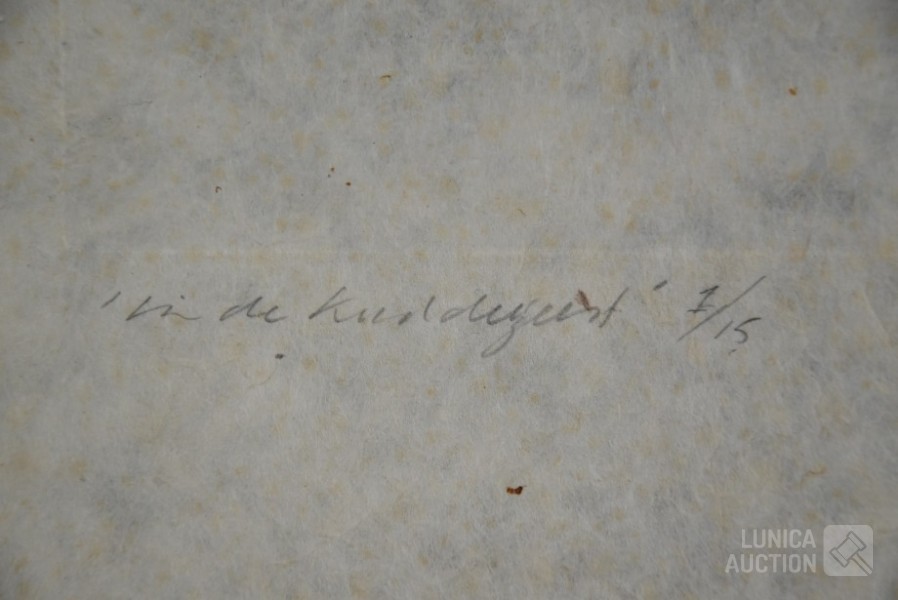 'in de Kuddegeest' 7/15
LUNICA
AUCTION